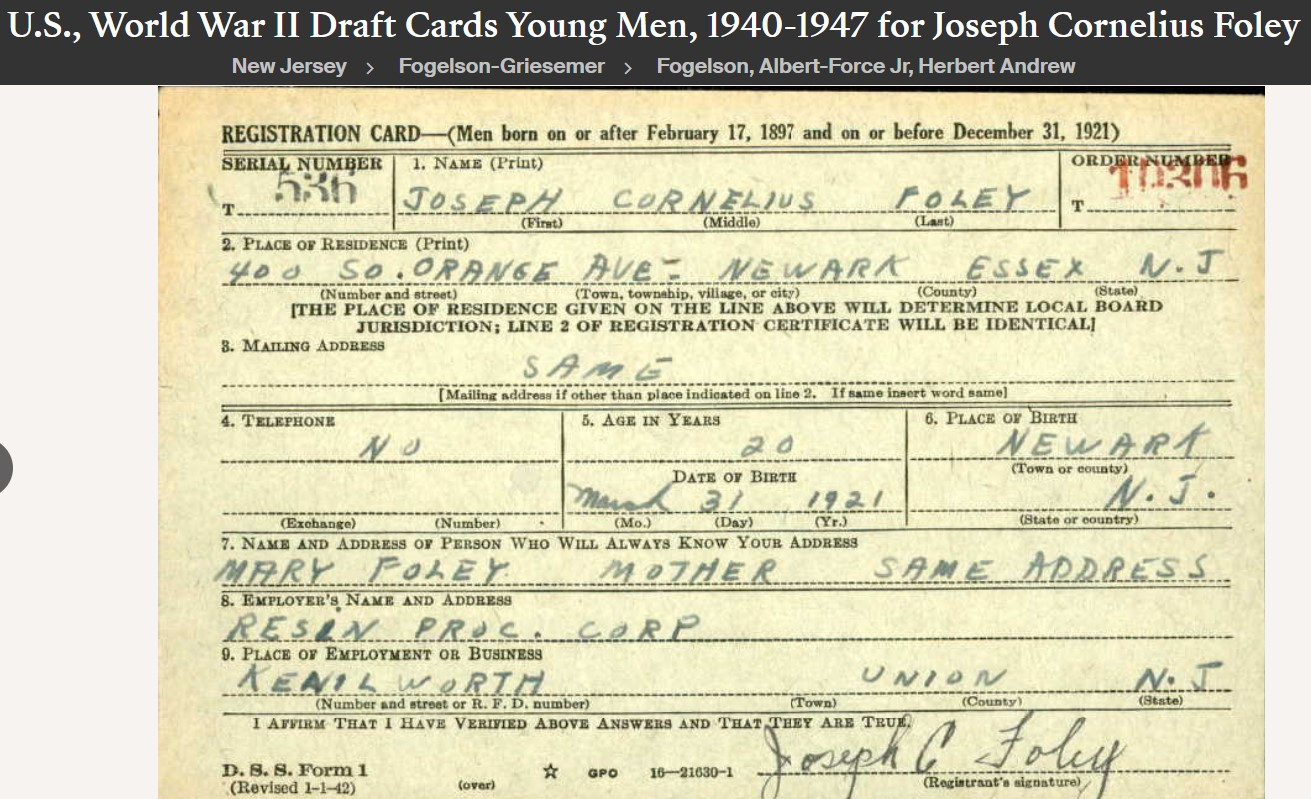 U.S., World War II Draft Cards Young Men, 1940-1947 for Joseph Cornelius Foley
New Jersey > Fogelson-Griesemer > Fogelson, Albert-Force Jr, Herbert Andrew
REGISTRATION CARD—(Men born on or after February 17, 1897 and on or before December 31, 1921)
SERIAL NUMBER 1. NAME (Print) ORDER NUMBER
536 10306
T JOSEPH CORNELIUS FOLEY T
(First) (Middle) (Last)
2. PLACE OF RESIDENCE (Print)
400 SO. ORANGE AVE- NEWARK ESSEX N.J
(Number and street) (Town, township, village, or city) (County) (State)
[THE PLACE OF RESIDENCE GIVEN ON THE LINE ABOVE WILL DETERMINE LOCAL BOARD
JURISDICTION; LINE 2 OF REGISTRATION CERTIFICATE WILL BE IDENTICAL]
3. MAILING ADDRESS
SAME
[Mailing address if other than place indicated on line 2. If same insert word same]
4. TELEPHONE 5. AGE IN YEARS 6. PLACE OF BIRTH
NO 20 NEWARK
DATE OF BIRTH (Town or county)
March 31 1921 N.J.
(Exchange) (Number) (Mo.) (Day) (Yr.) (State or country)
7. NAME AND ADDRESS OF PERSON WHO WILL ALWAYS KNOW YOUR ADDRESS
MARY FOLEY MOTHER SAME ADDRESS
8. EMPLOYER'S NAME AND ADDRESS
RESIN PROC. CORP
9. PLACE OF EMPLOYMENT OR BUSINESS
KENILWORTH UNION N.J
(Number and street or R. F. D. number) (Town) (County) (State)
I AFFIRM THAT I HAVE VERIFIED ABOVE ANSWERS AND THAT THEY ARE TRUE.
Joseph C Foley
D. S. S. Form 1 GPO 16—21630-1
(Revised 1-1-42) (over) (Registrant's signature)